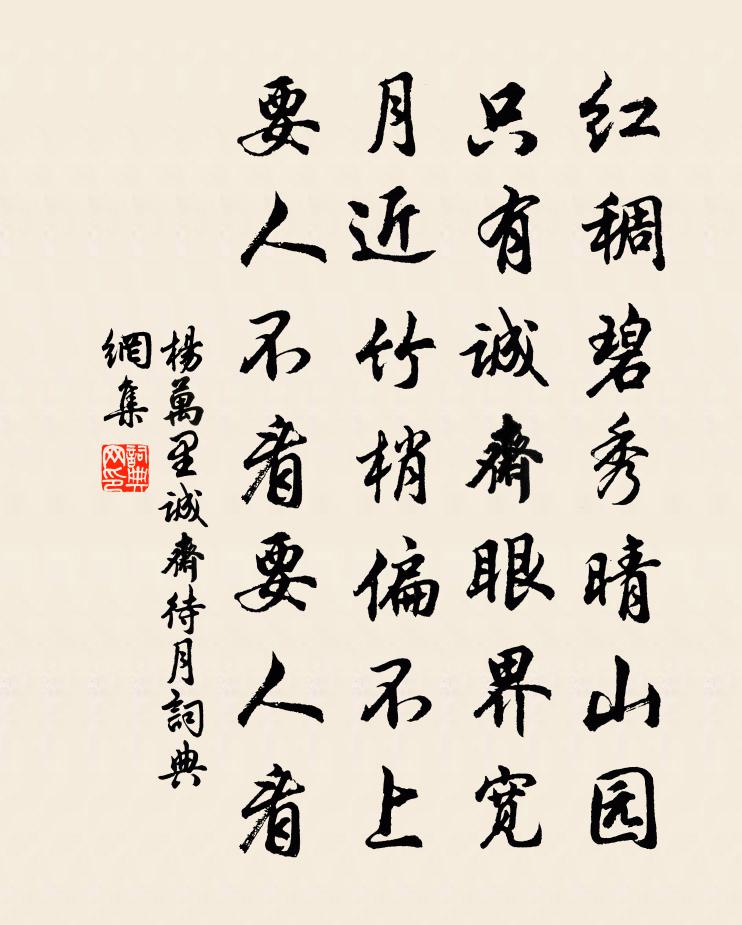 红稠碧秀晴山园
只有诚斋眼界宽
月近竹梢偏不上
要人不看要人看
楊萬里诚齋待月詞典
網集
詞典
网印